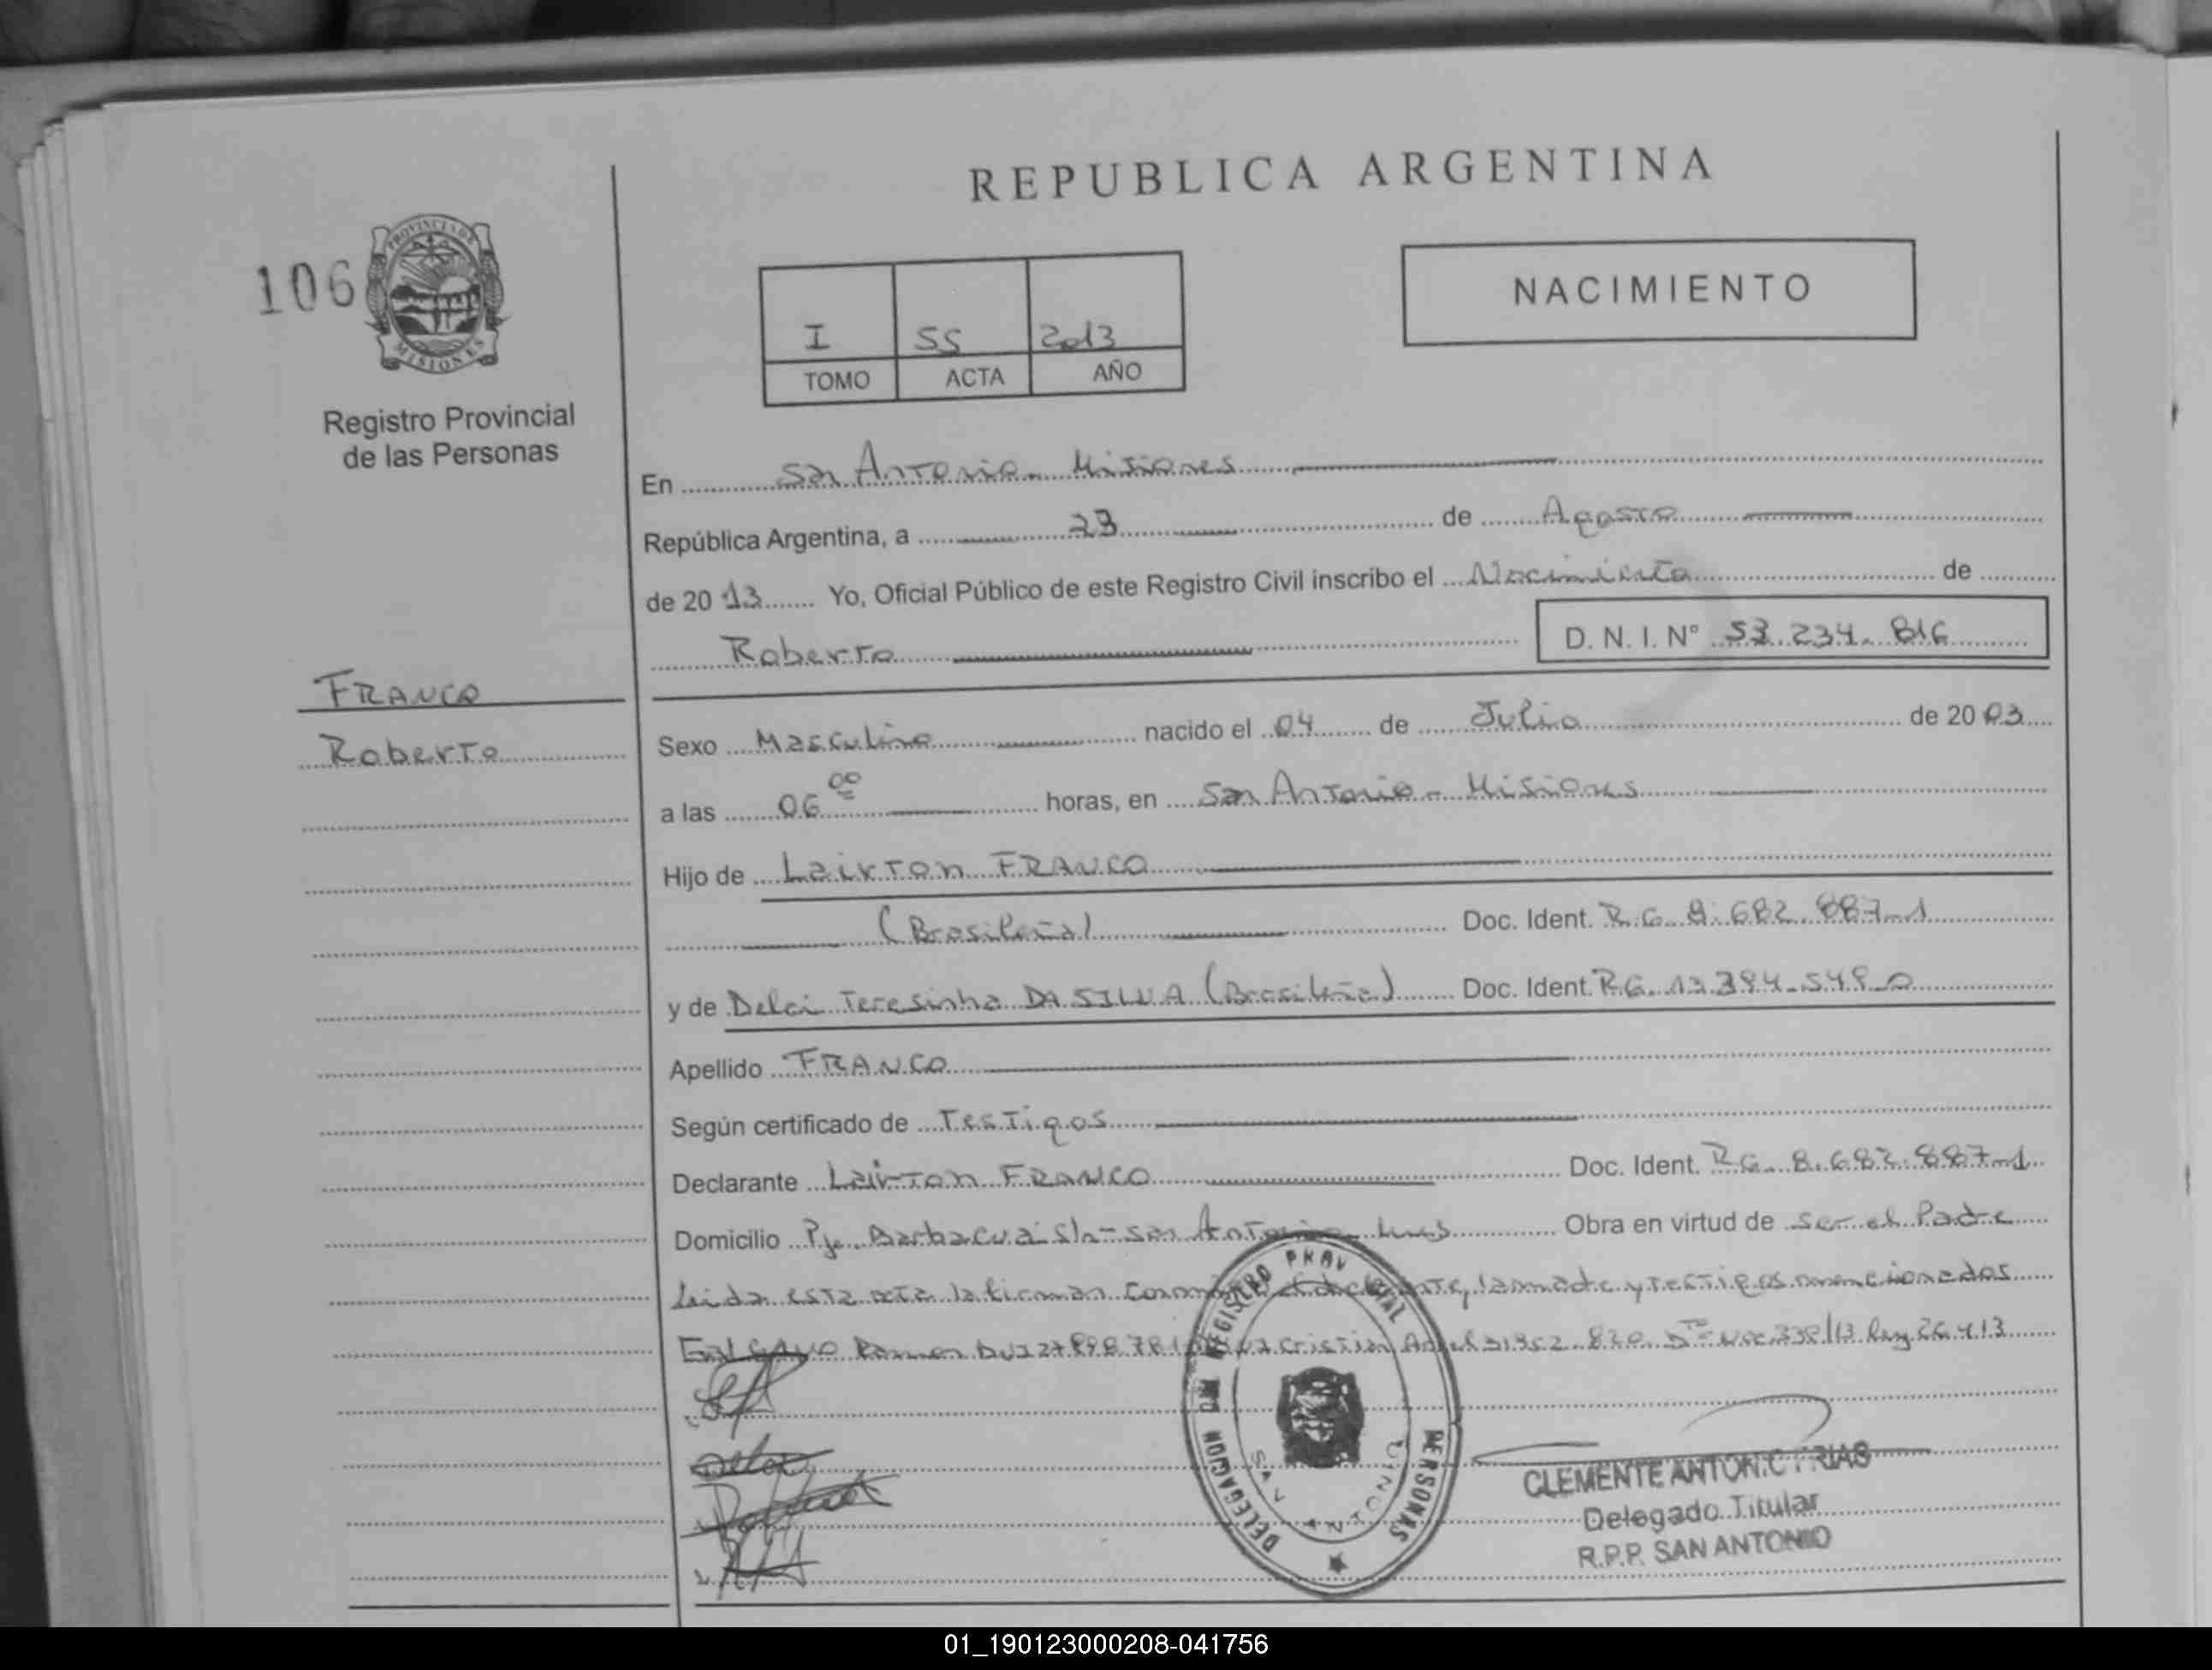 REPUBLICA ARGENTINA
106
PROVINCIA DE
MISIONES
Registro Provincial
de las Personas
I 55 2013
TOMO ACTA AÑO
NACIMIENTO
En San Antonio - Misiones
República Argentina, a 23 de Agosto
de 20 13 Yo, Oficial Público de este Registro Civil inscribo el Nacimiento de
Roberto D. N. I. N° 53.234.816
FRANCO
Roberto
Sexo Masculino nacido el 04 de Julio de 20 03
a las 06 00 horas, en San Antonio - Misiones
Hijo de Lairton FRANCO
(Brasileña) Doc. Ident. R.G. 8.682.887-1
y de Delci Teresinha DA SILVA (Brasileña) Doc. Ident. R.G.
Apellido FRANCO
Según certificado de Testigos
Declarante Lairton FRANCO Doc. Ident. RG. 8.682.887-1
Domicilio Pje. Barbacuá S/n - San Antonio Obra en virtud de ser el Padre
Leida esta acta la firman el declarante, la madre y testigos mencionados
Ramon Cristian Ley 26.413
DELEGACION DEL REGISTRO PROVINCIAL PERSONAS
SAN ANTONIO
CLEMENTE ANTONIO FRIAS
Delegado Titular
R.P.P. SAN ANTONIO
01_190123000208-041756